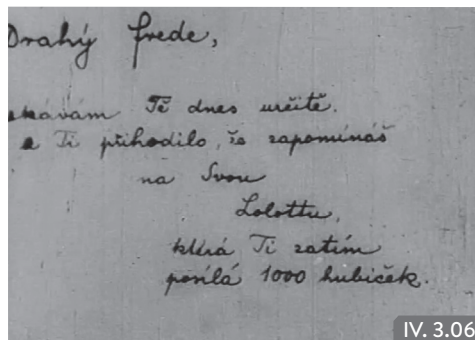 Drahý Frede,
Tě dnes určitě.
Ti přihodilo, že zapomínáš
na Svou
Lolottu,
která Ti zatím
posílá 1000 hubiček.
IV. 3.06